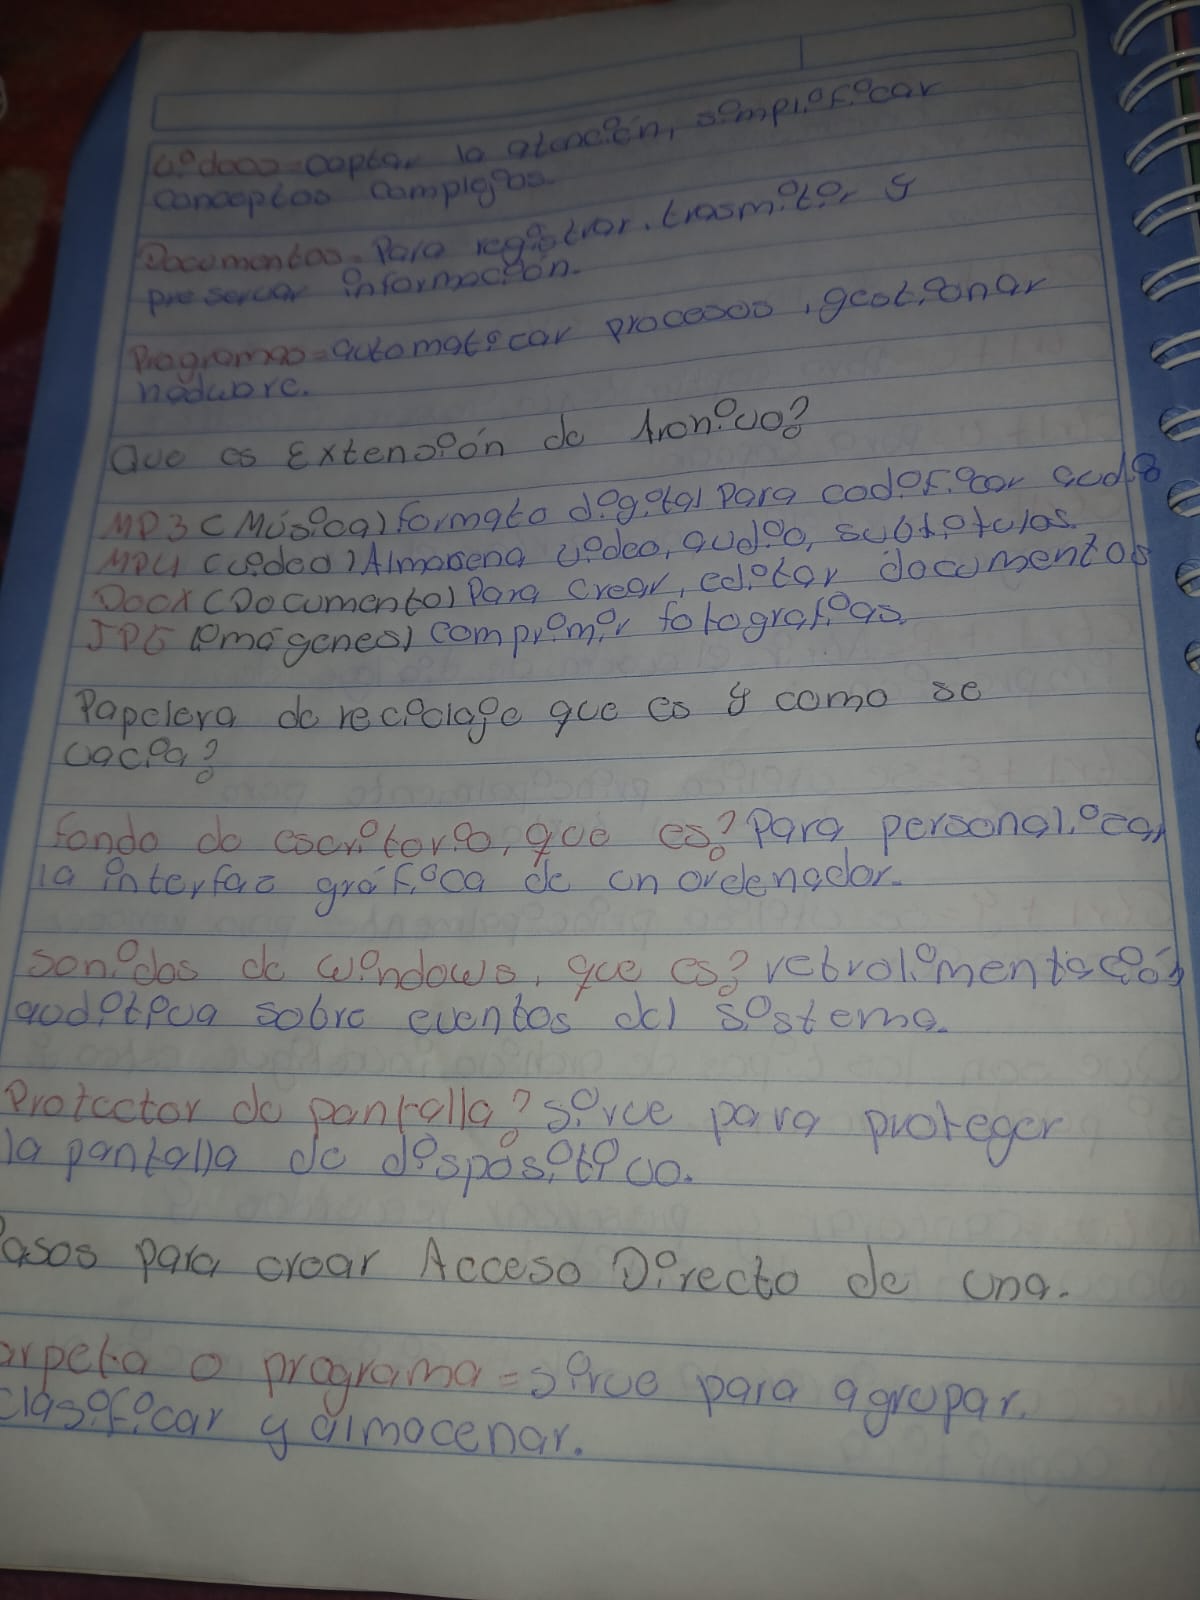 Videos=captar la atención, simplificar
conceptos complejos.
Documentos= Para registrar, trasmitir y
preservar información.
Programas=automatizar procesos, gestionar
hadware.
Que es Extensión de Archivo?
MP3 (Música) formato digital para codificar audio
MP4 (video) Almasena video, audio, subtitulos.
Docx (Documento) Para crear, editar documentos
JPG (imágenes) comprimir fotografias.
Papelera de reciclaje que es y como se
vacia?
Fondo de escritorio, que es? Para personalizar
la interfaz gráfica de un ordenador.
Sonidos de windows, que es? retroalimentación
auditiva sobre eventos del sistema.
Protector de pantalla? sirve para proteger
la pantalla de dispositivo.
Pasos para crear Acceso Directo de una.
arpeta o programa=sirve para agrupar.
clasificar y almacenar.